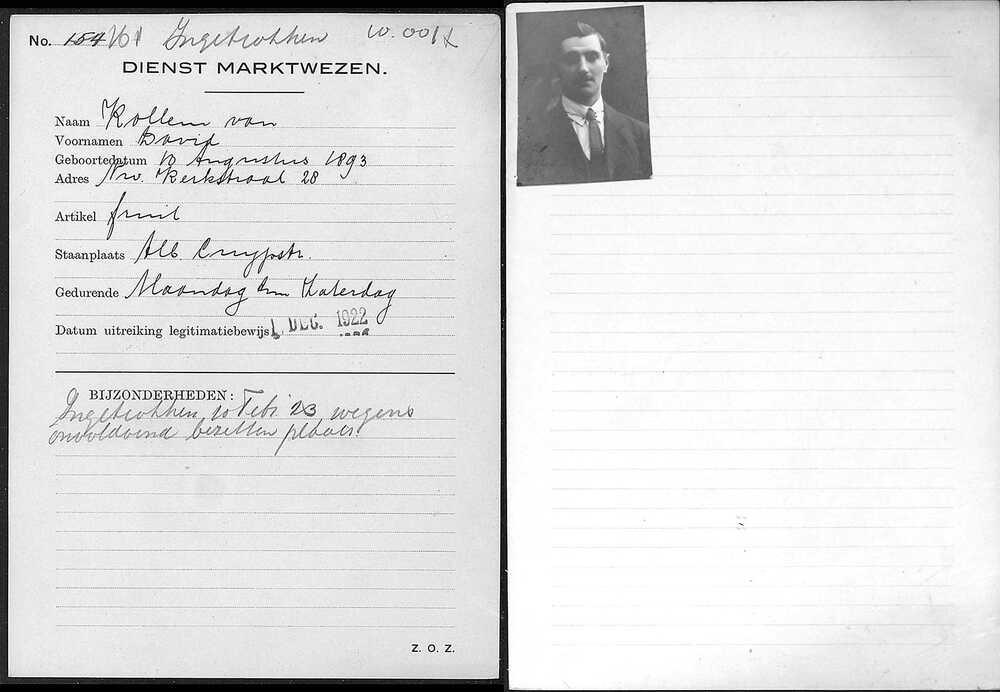 No. 154 161 Ingetrokken W.0011
DIENST MARKTWEZEN.
Naam Kollem van
Voornamen David
Geboortedatum 10 Augustus 1893
Adres Nw. Kerkstraat 28
Artikel fruit
Staanplaats Alb. Cuypstr.
Gedurende Maandag t/m Zaterdag
Datum uitreiking legitimatiebewijs 1 DEC. 1922
BIJZONDERHEDEN:
Ingetrokken 10 Feb. 23 wegens
onvoldoend bezetten plaats.
Z. O. Z.